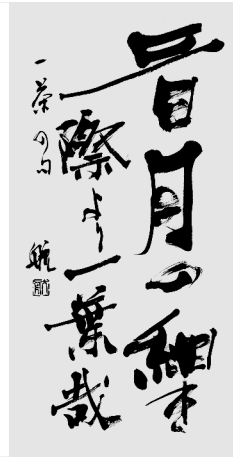 三日月の細き
際より一葉哉
一茶の句